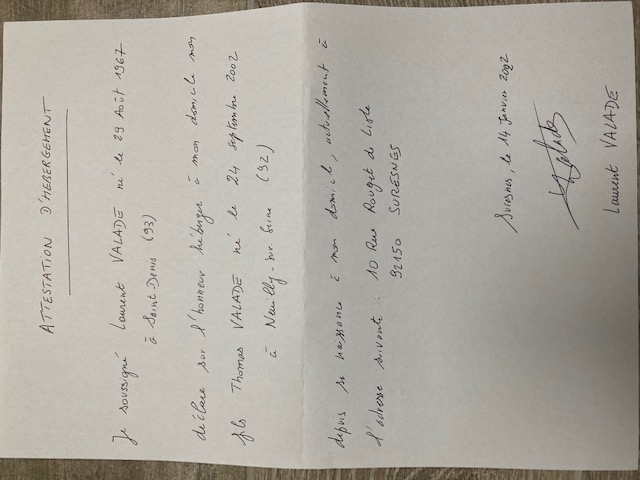 ATTESTATION D'HEBERGEMENT
Je soussigné Laurent VALADE né le 29 Août 1967
à Saint Denis (93)
déclare sur l'honneur héberger à mon domicile mon
fils Thomas VALADE né le 24 septembre 2002
à Neuilly-sur-Seine (92)
depuis sa naissance à mon domicile, actuellement à
l'adresse suivante : 10 Rue Rouget de Lisle
92150 SURESNES
Suresnes, le 14 Janvier 2022
Valade
Laurent VALADE